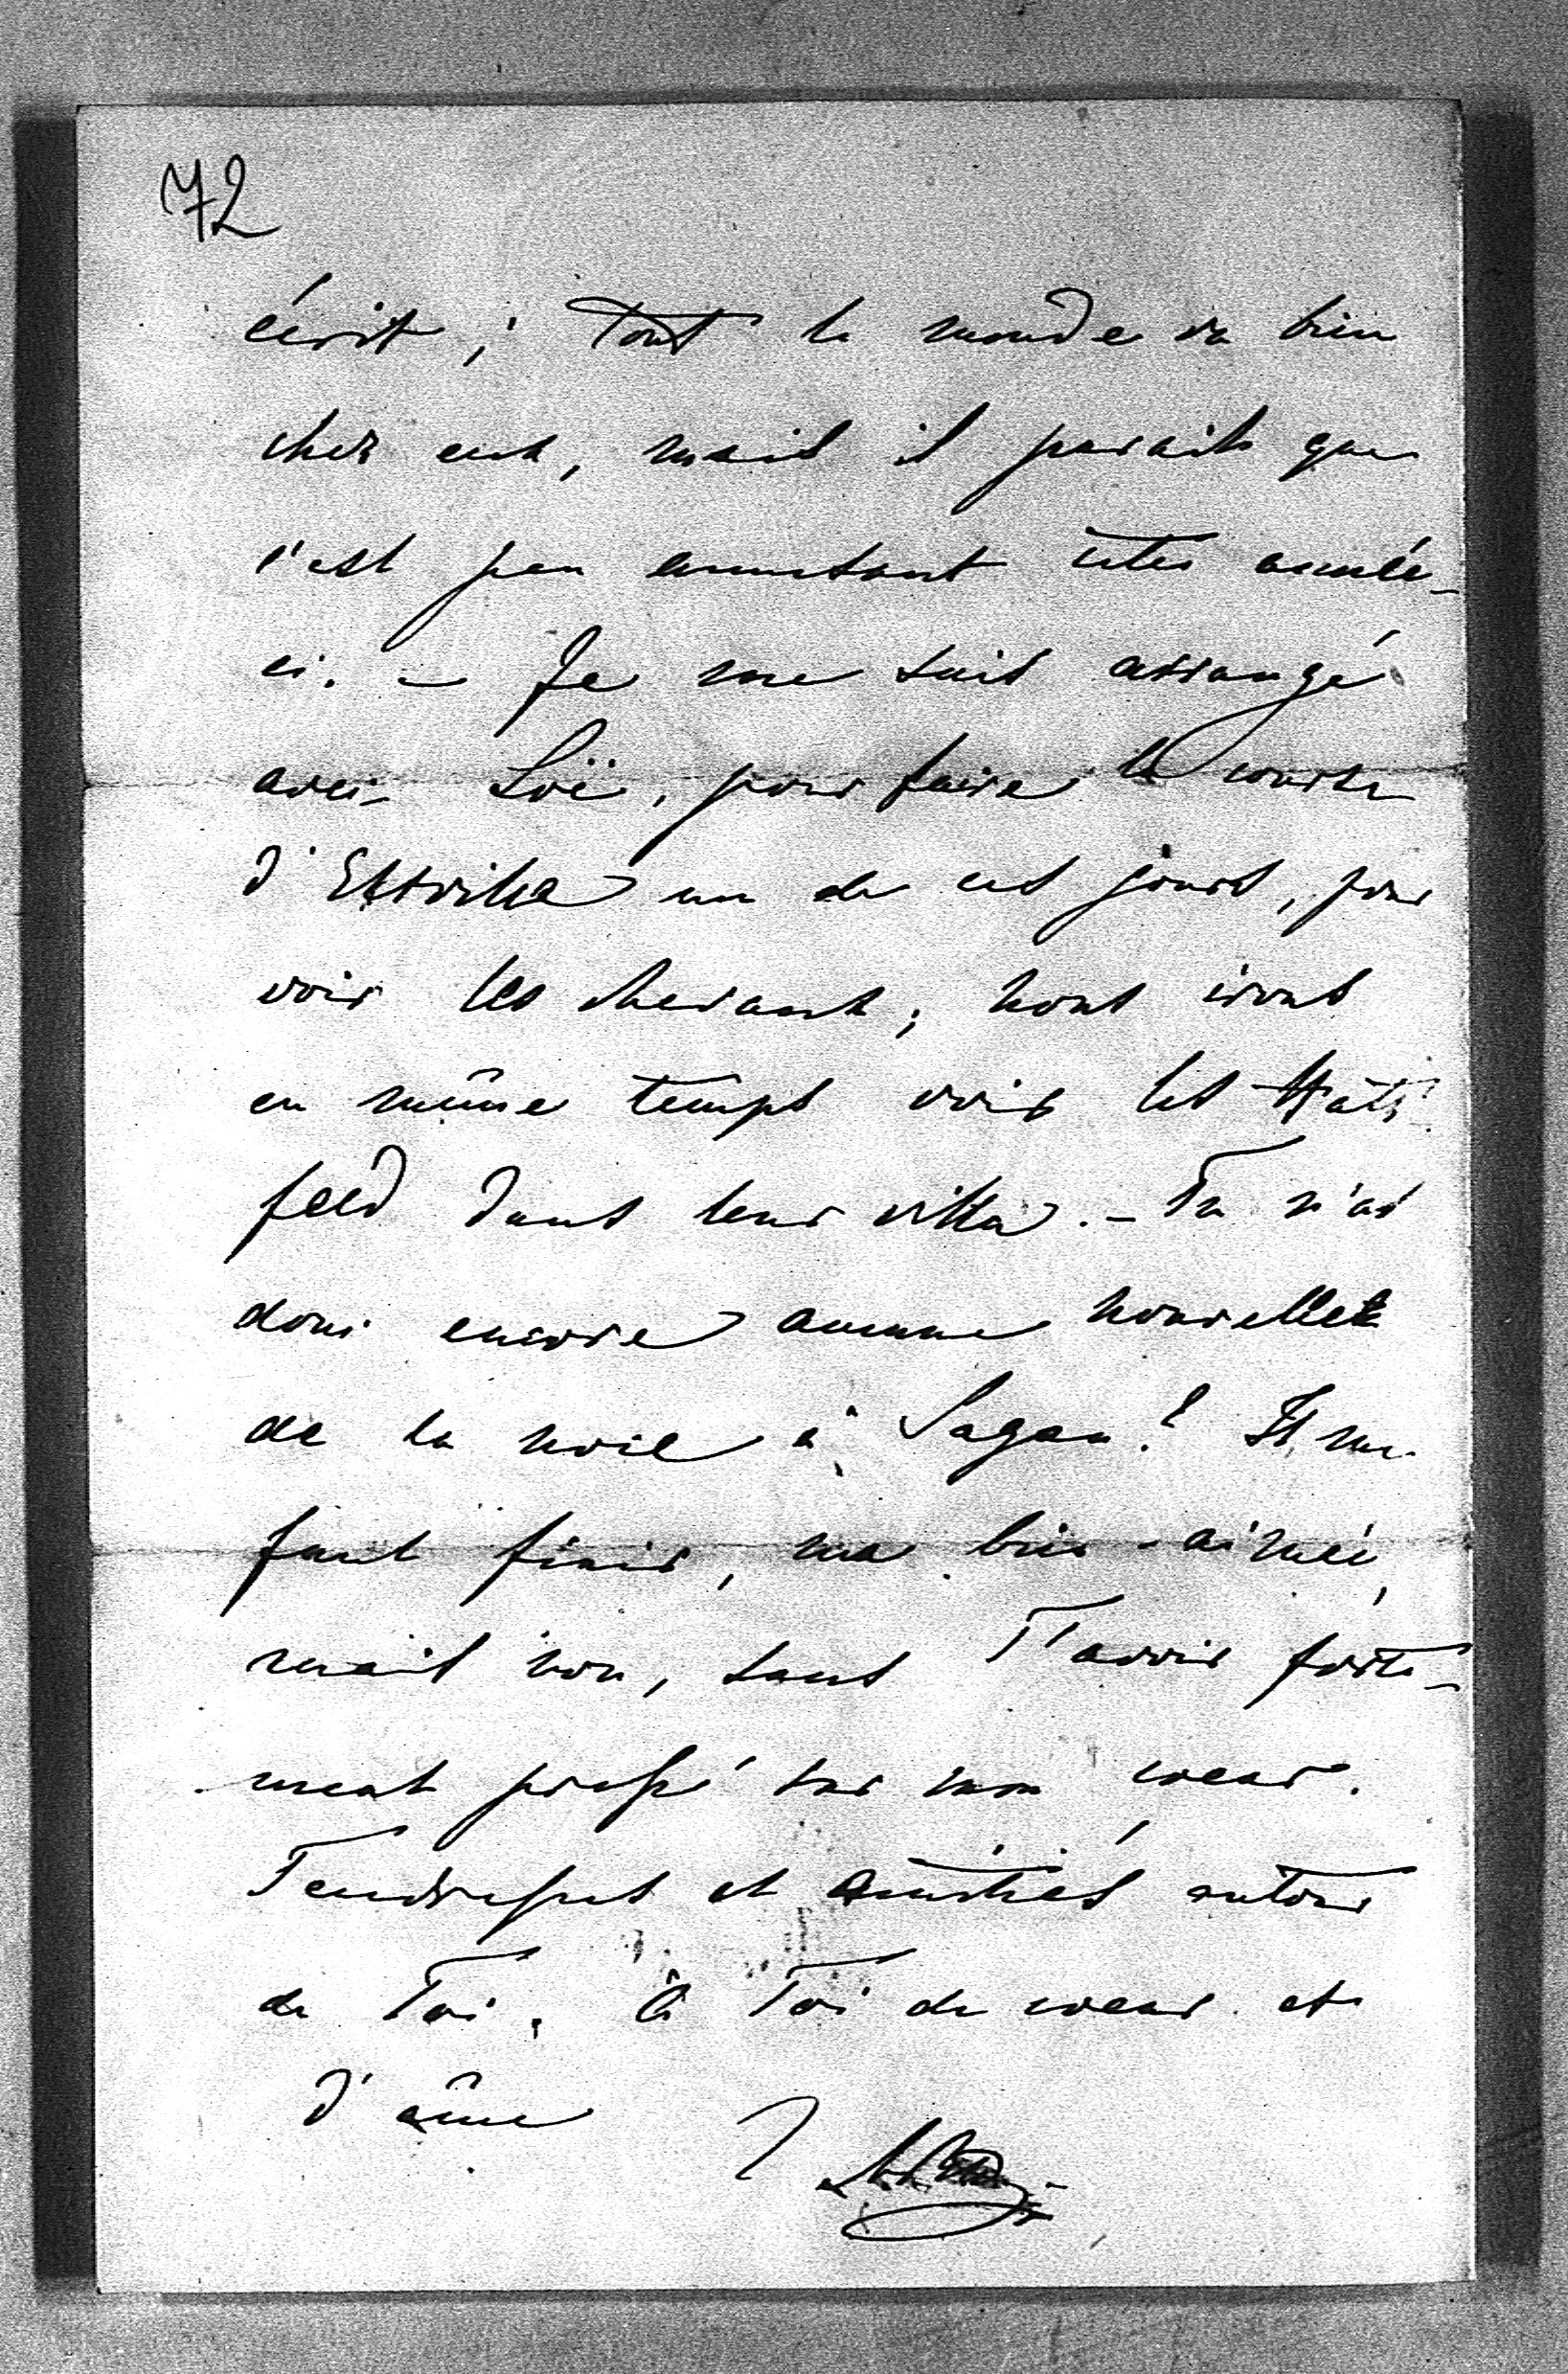 72
écrit ; tout le monde va bien
chez eux, mais il parait que
c'est peu amusant cette année-
ci. – Je me suis arrangé
avec Loë, pour faire la course
d' un de ces jours, pour
voir les chevaux ; nous irons
en même temps voir les Hatz-
feld dans leur villa. – Tu n'as
donc encore aucune nouvelle
de la noce à Sagan ? Il me
faut finir, ma bien-aimée,
mais non, sans T'avoir forte-
ment pressé sur mon coeur.
Tendresses et amitiés autour
de Toi. à Toi de coeur et
d'âme